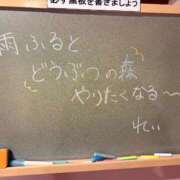 必ず黒板を書きましょう
雨ふると
どうぶつの森
やりたくなる〜
れい